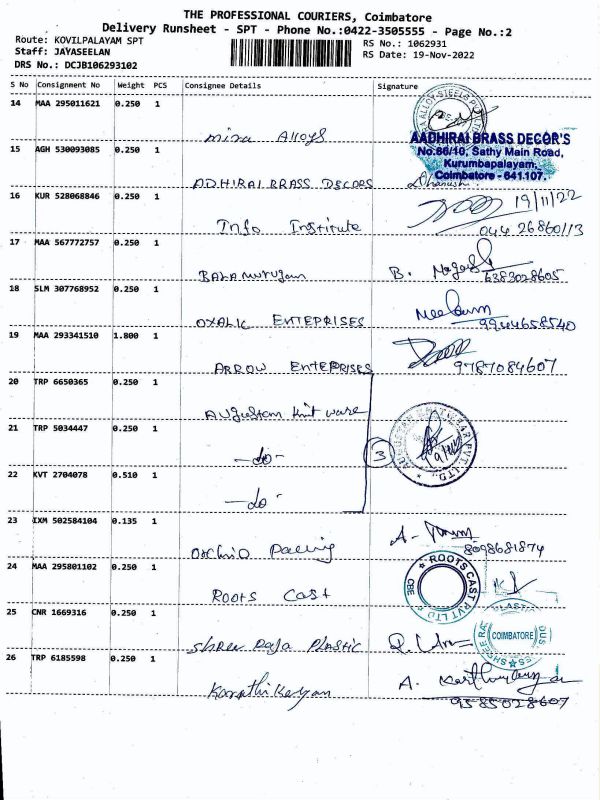 THE PROFESSIONAL COURIERS, Coimbatore
Delivery Runsheet - SPT - Phone No.:0422-3505555 - Page No.:2
Route: KOVILPALAYAM SPT
RS No.: 1062931
Staff: JAYASEELAN
RS Date: 19-Nov-2022
DRS No.: DCJB106293102
S No Consignment No Weight PCS Consignee Details Signature
14 MAA 295011621 0.250 1
Mira Alloys
AADHIRAI BRASS DECOR'S
No.66/10, Sathy Main Road,
Kurumbapalayam,
Coimbatore - 641 107.
15 AGH 530093085 0.250 1
ADHIRAI BRASS DECORS
16 KUR 528068846 0.250 1
19/11/22
Info Institute
044 26860113
17 MAA 567772757 0.250 1
Balamurugan
B. Nagesh
6383028605
18 SLM 307768952 0.250 1
OXALIC ENTEPRISES
9944658540
19 MAA 293341510 1.800 1
ARROW ENTEPRISES
9787084607
20 TRP 6650365 0.250 1
Augustan knit ware
21 TRP 5034447 0.250 1
-do-
3
22 KVT 2704078 0.510 1
-do-
23 IXM 502584104 0.135 1
8098681874
24 MAA 295801102 0.250 1
ROOTS CAST PVT LTD
CBE
Roots Cast
25 CNR 1669316 0.250 1
COIMBATORE
Shree Raja PLASTIC
26 TRP 6185598 0.250 1
Karathikeyan
9585028607